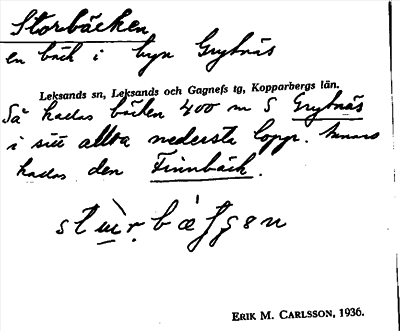 Storbäcken
en bäck i byn Grytnäs
Leksands sn, Leksands och Gagnefs tg, Kopparbergs län.
Så kallas bäcken 400 m S Grytnäs
i sitt allra nedersta lopp. Annars
kallas den Finnbäck.
ERIK M. CARLSSON, 1936.